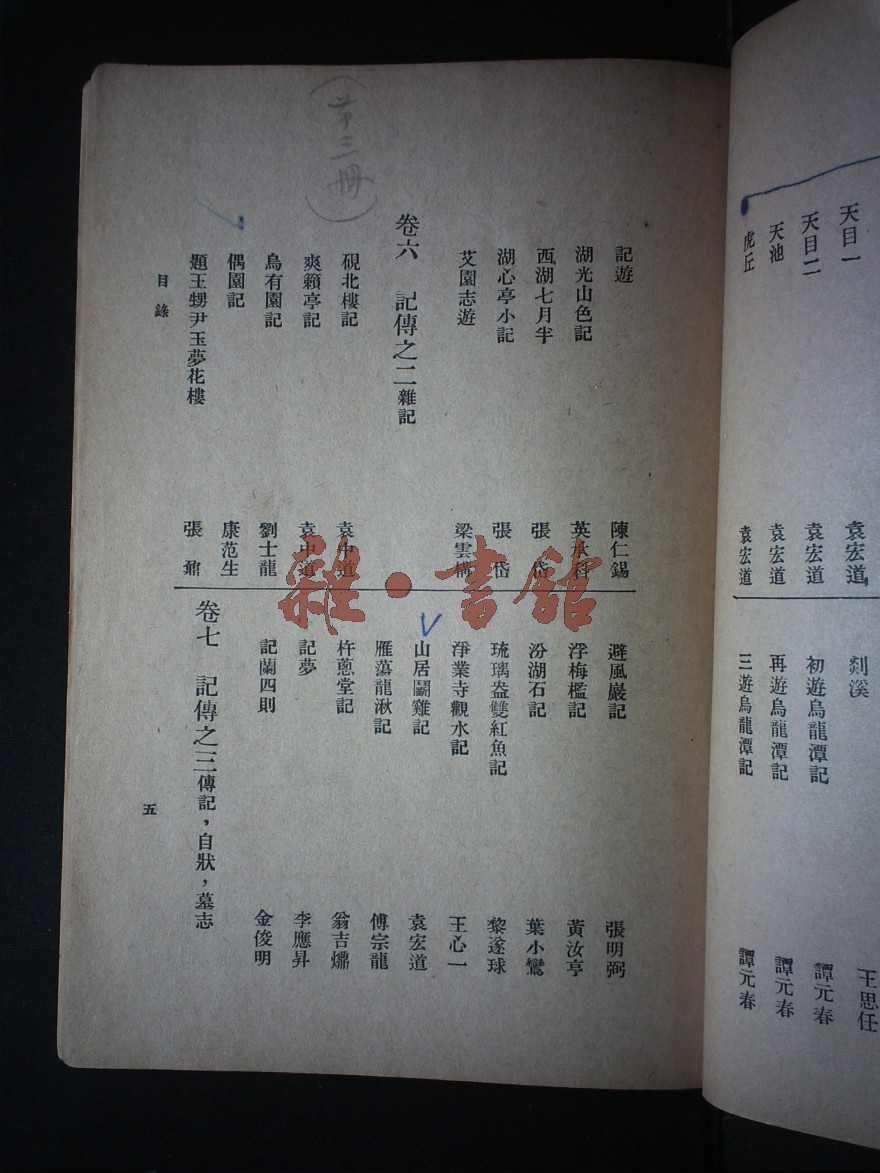 天目一 袁宏道
天目二 袁宏道
天池 袁宏道
虎丘 袁宏道
剡溪 王思任
初遊烏龍潭記 譚元春
再遊烏龍潭記 譚元春
三遊烏龍潭記 譚元春
(第三冊)
記遊 陳仁錫
湖光山色記 英承科
西湖七月半 張岱
湖心亭小記 張岱
艾園志遊 梁雲構
卷六 記傳之二雜記
硯北樓記 袁中道
爽籟亭記 袁中道
烏有園記 劉士龍
偶園記 康范生
題王甥尹玉夢花樓 張鼐
避風巖記 張明弼
浮梅檻記 黃汝亨
汾湖石記 葉小鸞
琉璃盎雙紅魚記 黎遂球
淨業寺觀水記 王心一
山居鬭雞記 袁宏道
雁蕩龍湫記 傅宗龍
杵蒽堂記 翁吉㷍
記夢 李應昇
記蘭四則 金俊明
卷七 記傳之三傳記，自狀，墓志
目錄
五
雜·書館